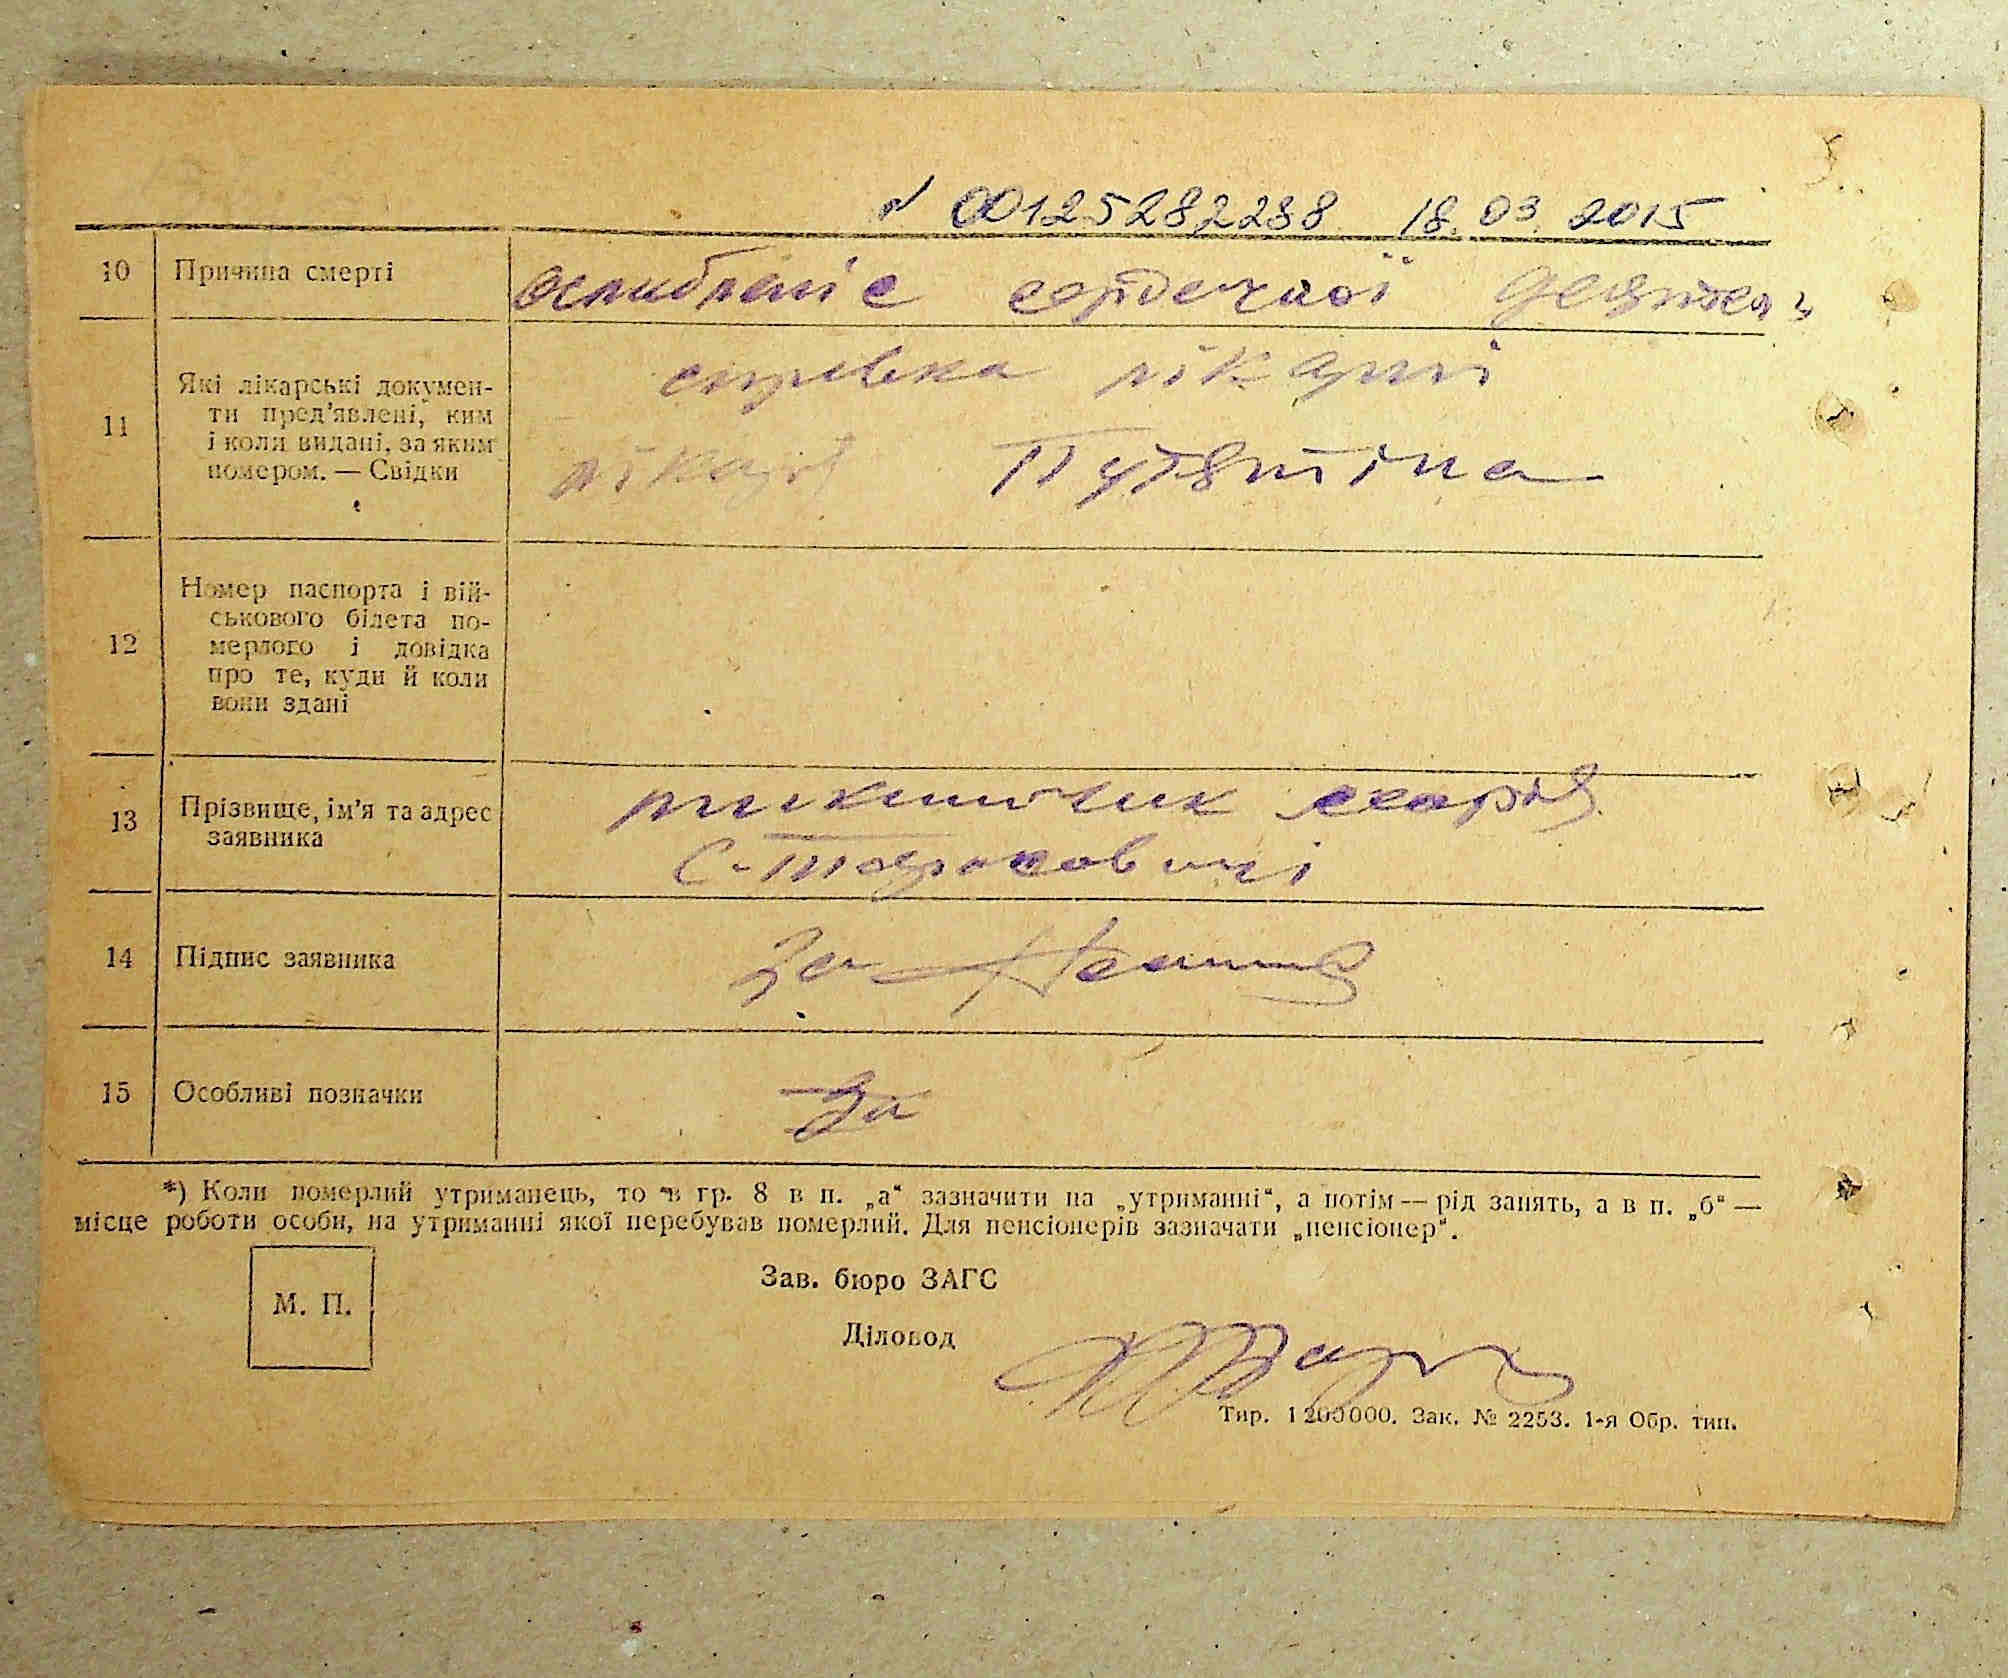 № 00125282288 18.03.2015
10 Причина смерті
ослабленіє сердечної деятел
11 Які лікарські докумен-
ти пред'явлені, ким
і коли видані, за яким
номером. — Свідки
справка лікарні
лікар Путятіна
12 Номер паспорта і вій-
ськового білета по-
мерлого і довідка
про те, куди й коли
вони здані
13 Прізвище, ім'я та адрес
заявника
марія
14 Підпис заявника
За
15 Особливі позначки
За
*) Коли померлий утриманець, то в гр. 8 в п. „а“ зазначити на „утриманні“, а потім — рід занять, а в п. „б“ —
місце роботи особи, на утриманні якої перебував померлий. Для пенсіонерів зазначати „пенсіонер“.
М. П.
Зав. бюро ЗАГС
Діловод
Тир. 1200000. Зак. № 2253. 1-я Обр. тип.